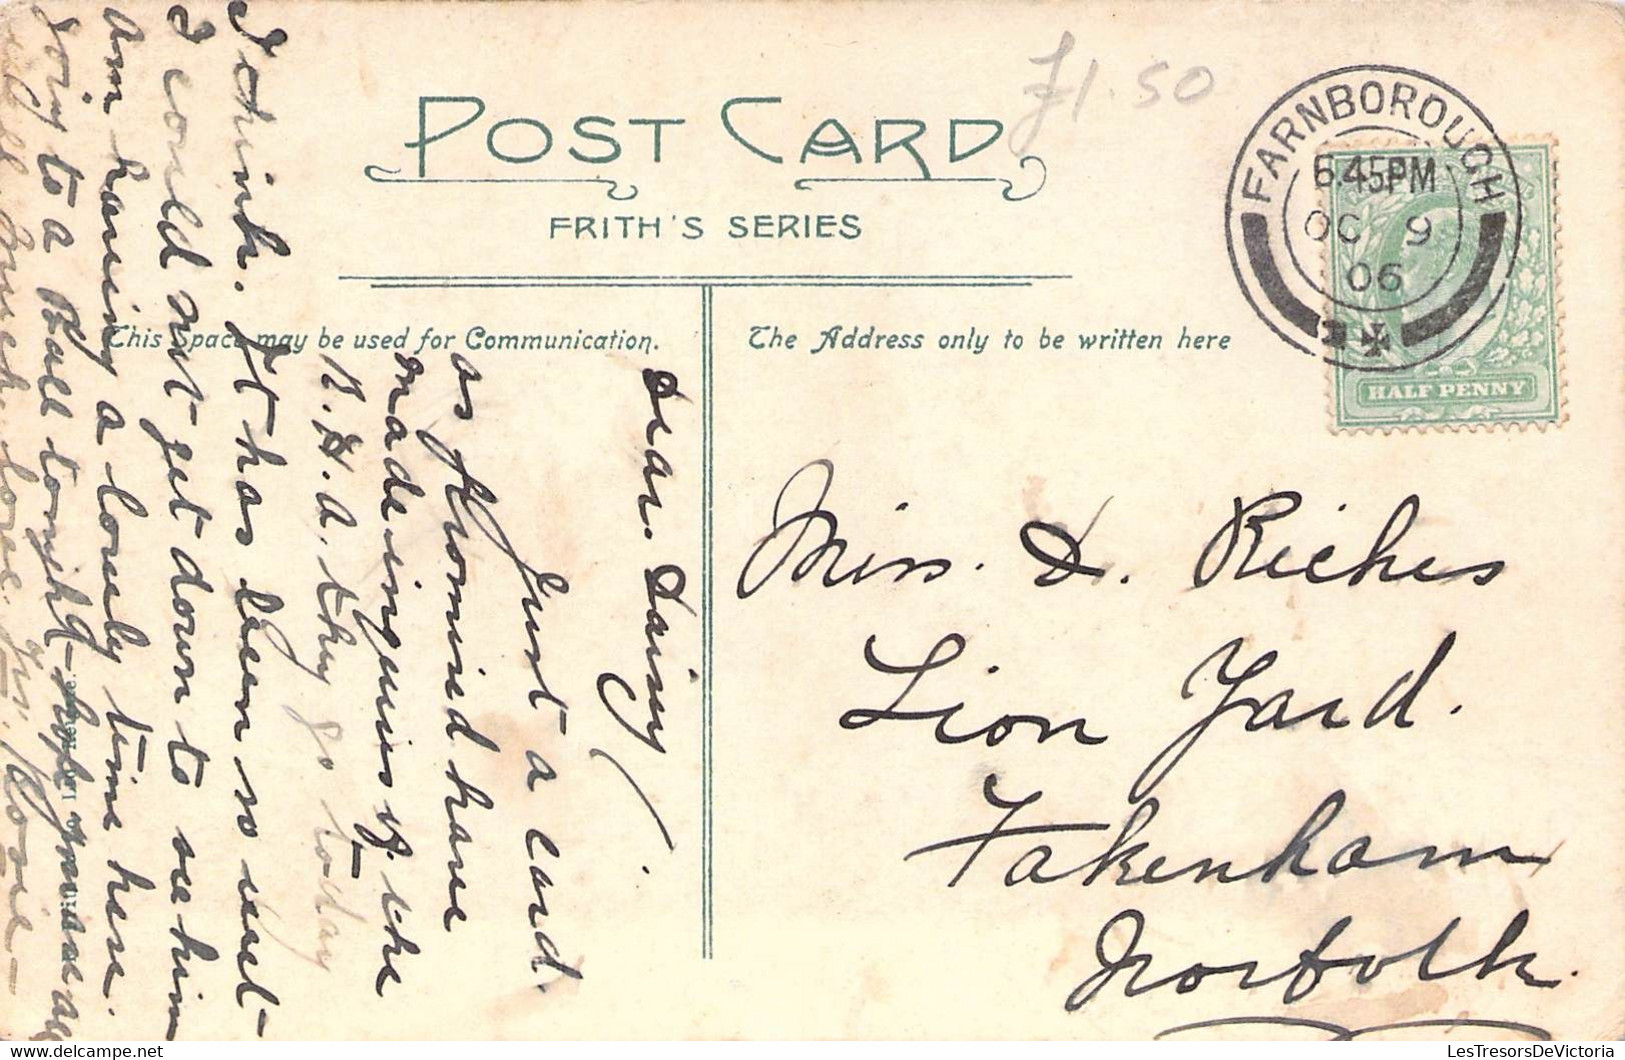 £1.50
POST CARD
FRITH'S SERIES
FARNBOROUGH
6.45PM
OC 9
06
HALF PENNY
This Space may be used for Communication.
The Address only to be written here
Miss. D. Riches
Lion Yard.
Fakenham
Norfolk.
Dear. Daisy
Just a card.
as promised have
made inquiries of the
R.H.A. they go today
I think. It has been so wet
I could not get down to see him
am having a lovely time here.
going to a Ball tonight hope you are
with much love. yrs. Rosie
LesTresorsDeVictoria